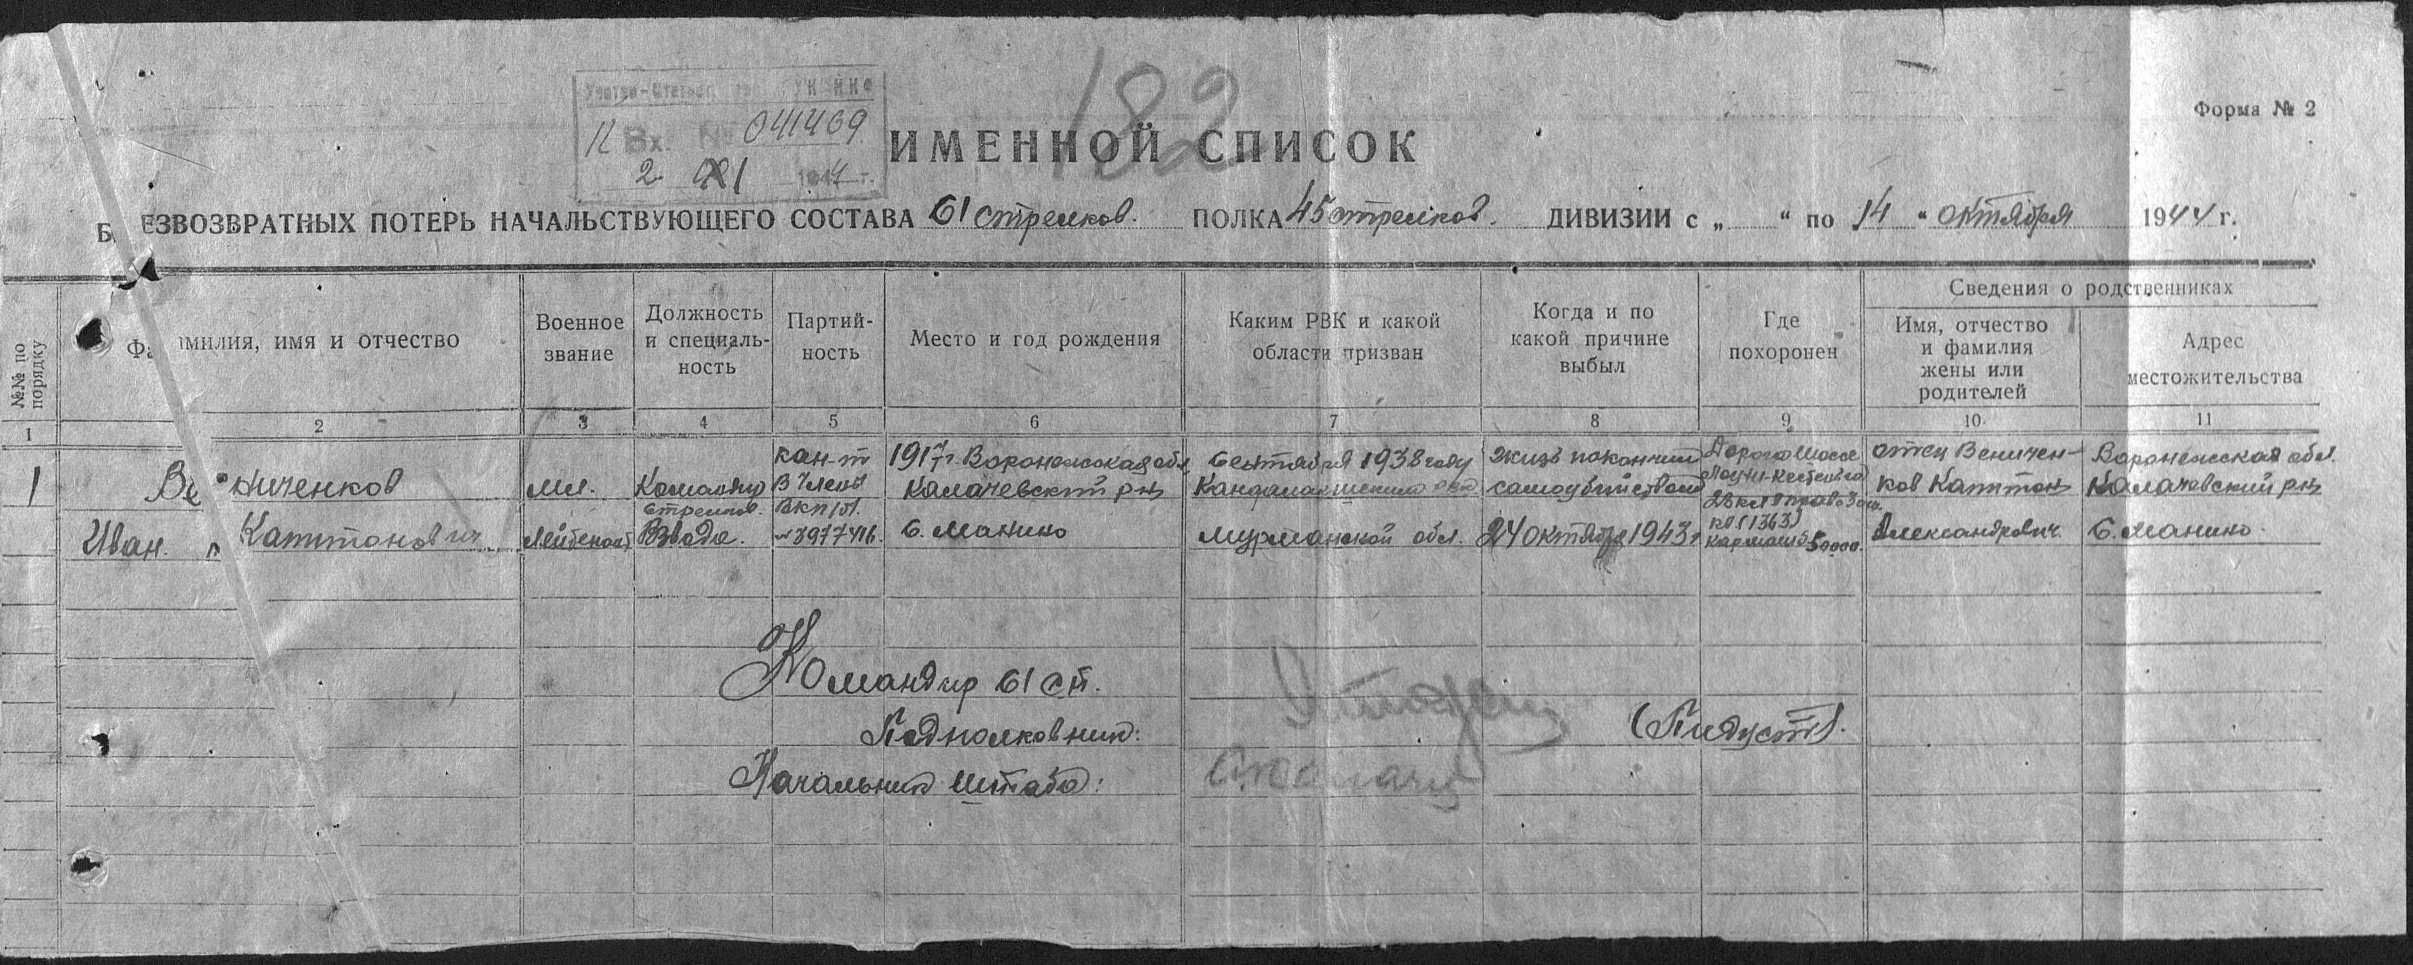 182
Форма № 2
Учетно-Статист
УК ККФ
Вх. № 041469
2 XI 1944 г.
ИМЕННОЙ СПИСОК
БЕЗВОЗВРАТНЫХ ПОТЕРЬ НАЧАЛЬСТВУЮЩЕГО СОСТАВА 61 стрелков. ПОЛКА 45 стрелков. ДИВИЗИИ с „ “ по 14 “ октября 1944 г.
№№ по порядку
Фамилия, имя и отчество
Военное звание
Должность и специаль-ность
Партий-ность
Место и год рождения
Каким РВК и какой области призван
Когда и по какой причине выбыл
Где похоронен
Сведения о родственниках
Имя, отчество и фамилия жены или родителей
Адрес местожительства
1 2 3 4 5 6 7 8 9 10 11
1
Ве ниченков
Иван Капитонович
мл.
Лейтенант
Командир
стрелков.
Взвода.
кан-т
в члены
ВКП(б).
№3977416.
1917 г. Воронежская обл
Калачевский р-н
с. Манино
Сентября 1938 году
Кандалакшским рвк
Мурманской обл.
Жизь покончил
самоубийством
24 октября 1943 г
Дорога шоссе
Лоухи-Кестеньга
карта 50000.
отец Веничен-
ков Капитон
Александрович.
Воронежская обл.
Калачевский р-н
с. Манино.
Командир 61 сп.
Подполковник:
(Пидуст).
Начальник штаба: